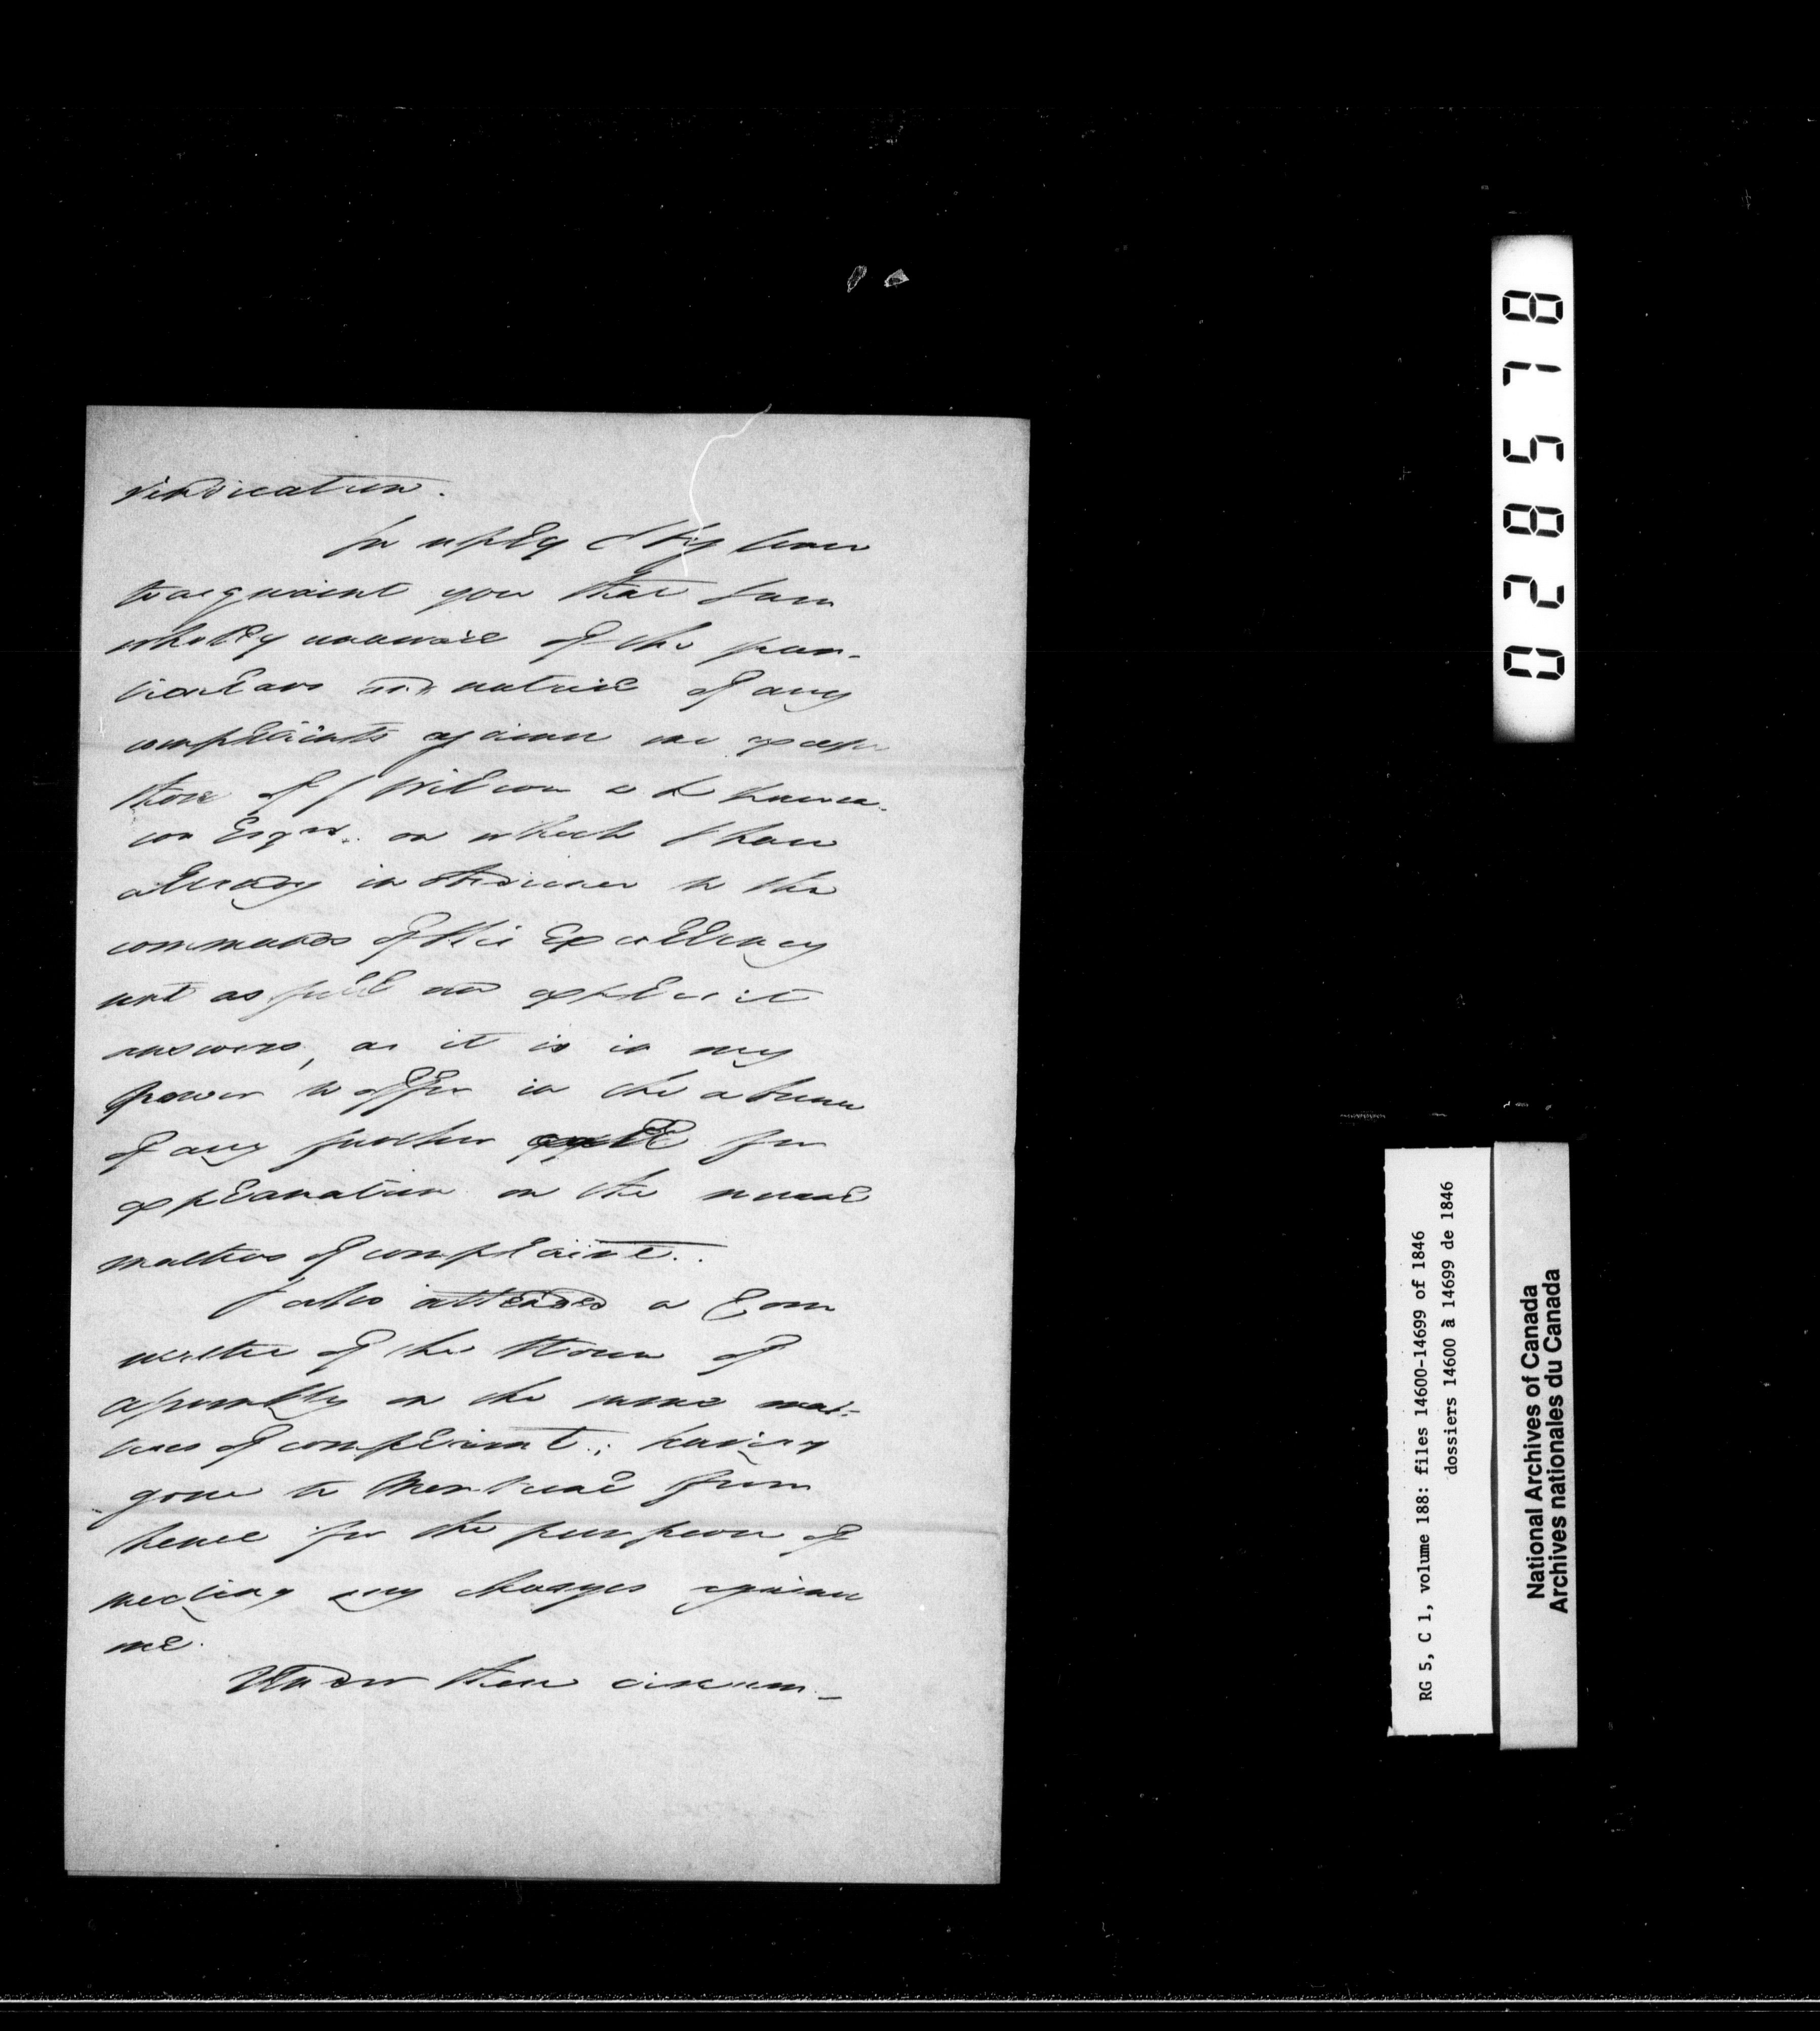 vindication.
In reply I beg leave
to acquaint you that I am
wholly unaware of the par-
ticulars or nature of any
complaints against me except
those of J Wilson &
Esqrs. on which I have
already in obedience to the
commands of His Excellency
sent as full and explicit
answers, as it is in my
power to offer in the absence
of any further call for
explanation on the several
matters of complaint.
I also attended a Com
mittee of the House of
Assembly on the same mat-
ters of complaint; having
gone to Montreal from
hence for the purpose of
meeting any charges against
me.
Under these circum-
028578
RG 5, C 1, volume 188: files 14600-14699 of 1846
dossiers 14600 à 14699 de 1846
National Archives of Canada
Archives nationales du Canada